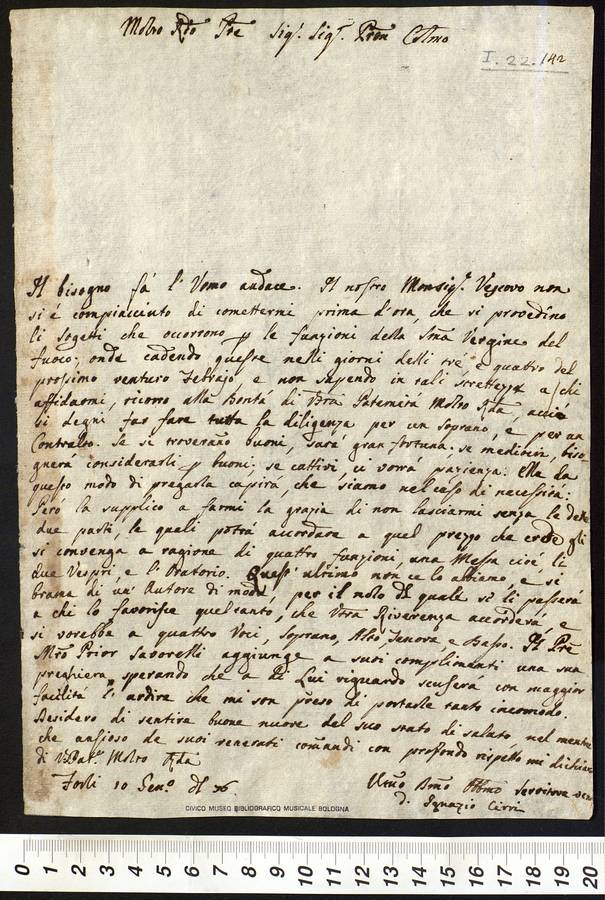 Molto Rdo Pre Sigr. Sigr. Pron Colmo
I. 22. 142
Il bisogno fà l'Uomo audace. Il nostro Monsigr. Vescovo non
si è compiacciuto di comettermi prima d'ora, che si provedino
li sogetti che occorrono p le funzioni della Sma Vergine del
fuoco; onde cadendo queste nelli giorni delli tré, e quattro del
prossimo venturo Febrajo, e non sapendo in tali strettezze a chi
affidarmi, ricorro alla Bontà di Vra Paternità Molto Rda, acciò
si degni far fare tutta la diligenza per un soprano, e per un
Contralto. Se si troverano buoni, sarà gran fortuna; se mediocri, biso
gnerà considerarli p buoni; se cattivi, ci vorrà pazienza: Ella da
questo modo di pregarla capirà, che siamo nel caso di necessità:
Però la supplico a farmi la grazia di non lasciarmi senza le dette
due parti, le quali potrà accordare a quel prezzo che crede gli
si convenga a ragione di quattro funzioni, una Messa cioè, li
due Vespri, e l'Oratorio. Quest'ultimo non ce lo abbiamo, e si
brama di un Autore di moda, per il nolo del quale si li passerà
a chi lo favorisce quel tanto, che Vtra Riverenza accorderà, e
si vorebba a quattro Voci, Soprano, Alto, Tenore, e Basso. Il Pre
Mro Prior Savorelli aggiunge a suoi complimenti una sua
preghiera, sperando che a Di Lui riguardo scuserà con maggior
facilità l'ardire che mi son preso di portarle tanto incomodo.
Desidero di sentire buone nuove del suo stato di salute, nel mentre
che ansioso de suoi venerati comandi con profondo rispetto mi dichiaro
di V. Molto Rda
Forlì 10 Geno
Umo Dmo Obmo Servitore
D. Ignazio Cirri
CIVICO MUSEO BIBLIOGRAFICO MUSICALE BOLOGNA
0 1 2 3 4 5 6 7 8 9 10 11 12 13 14 15 16 17 18 19 20